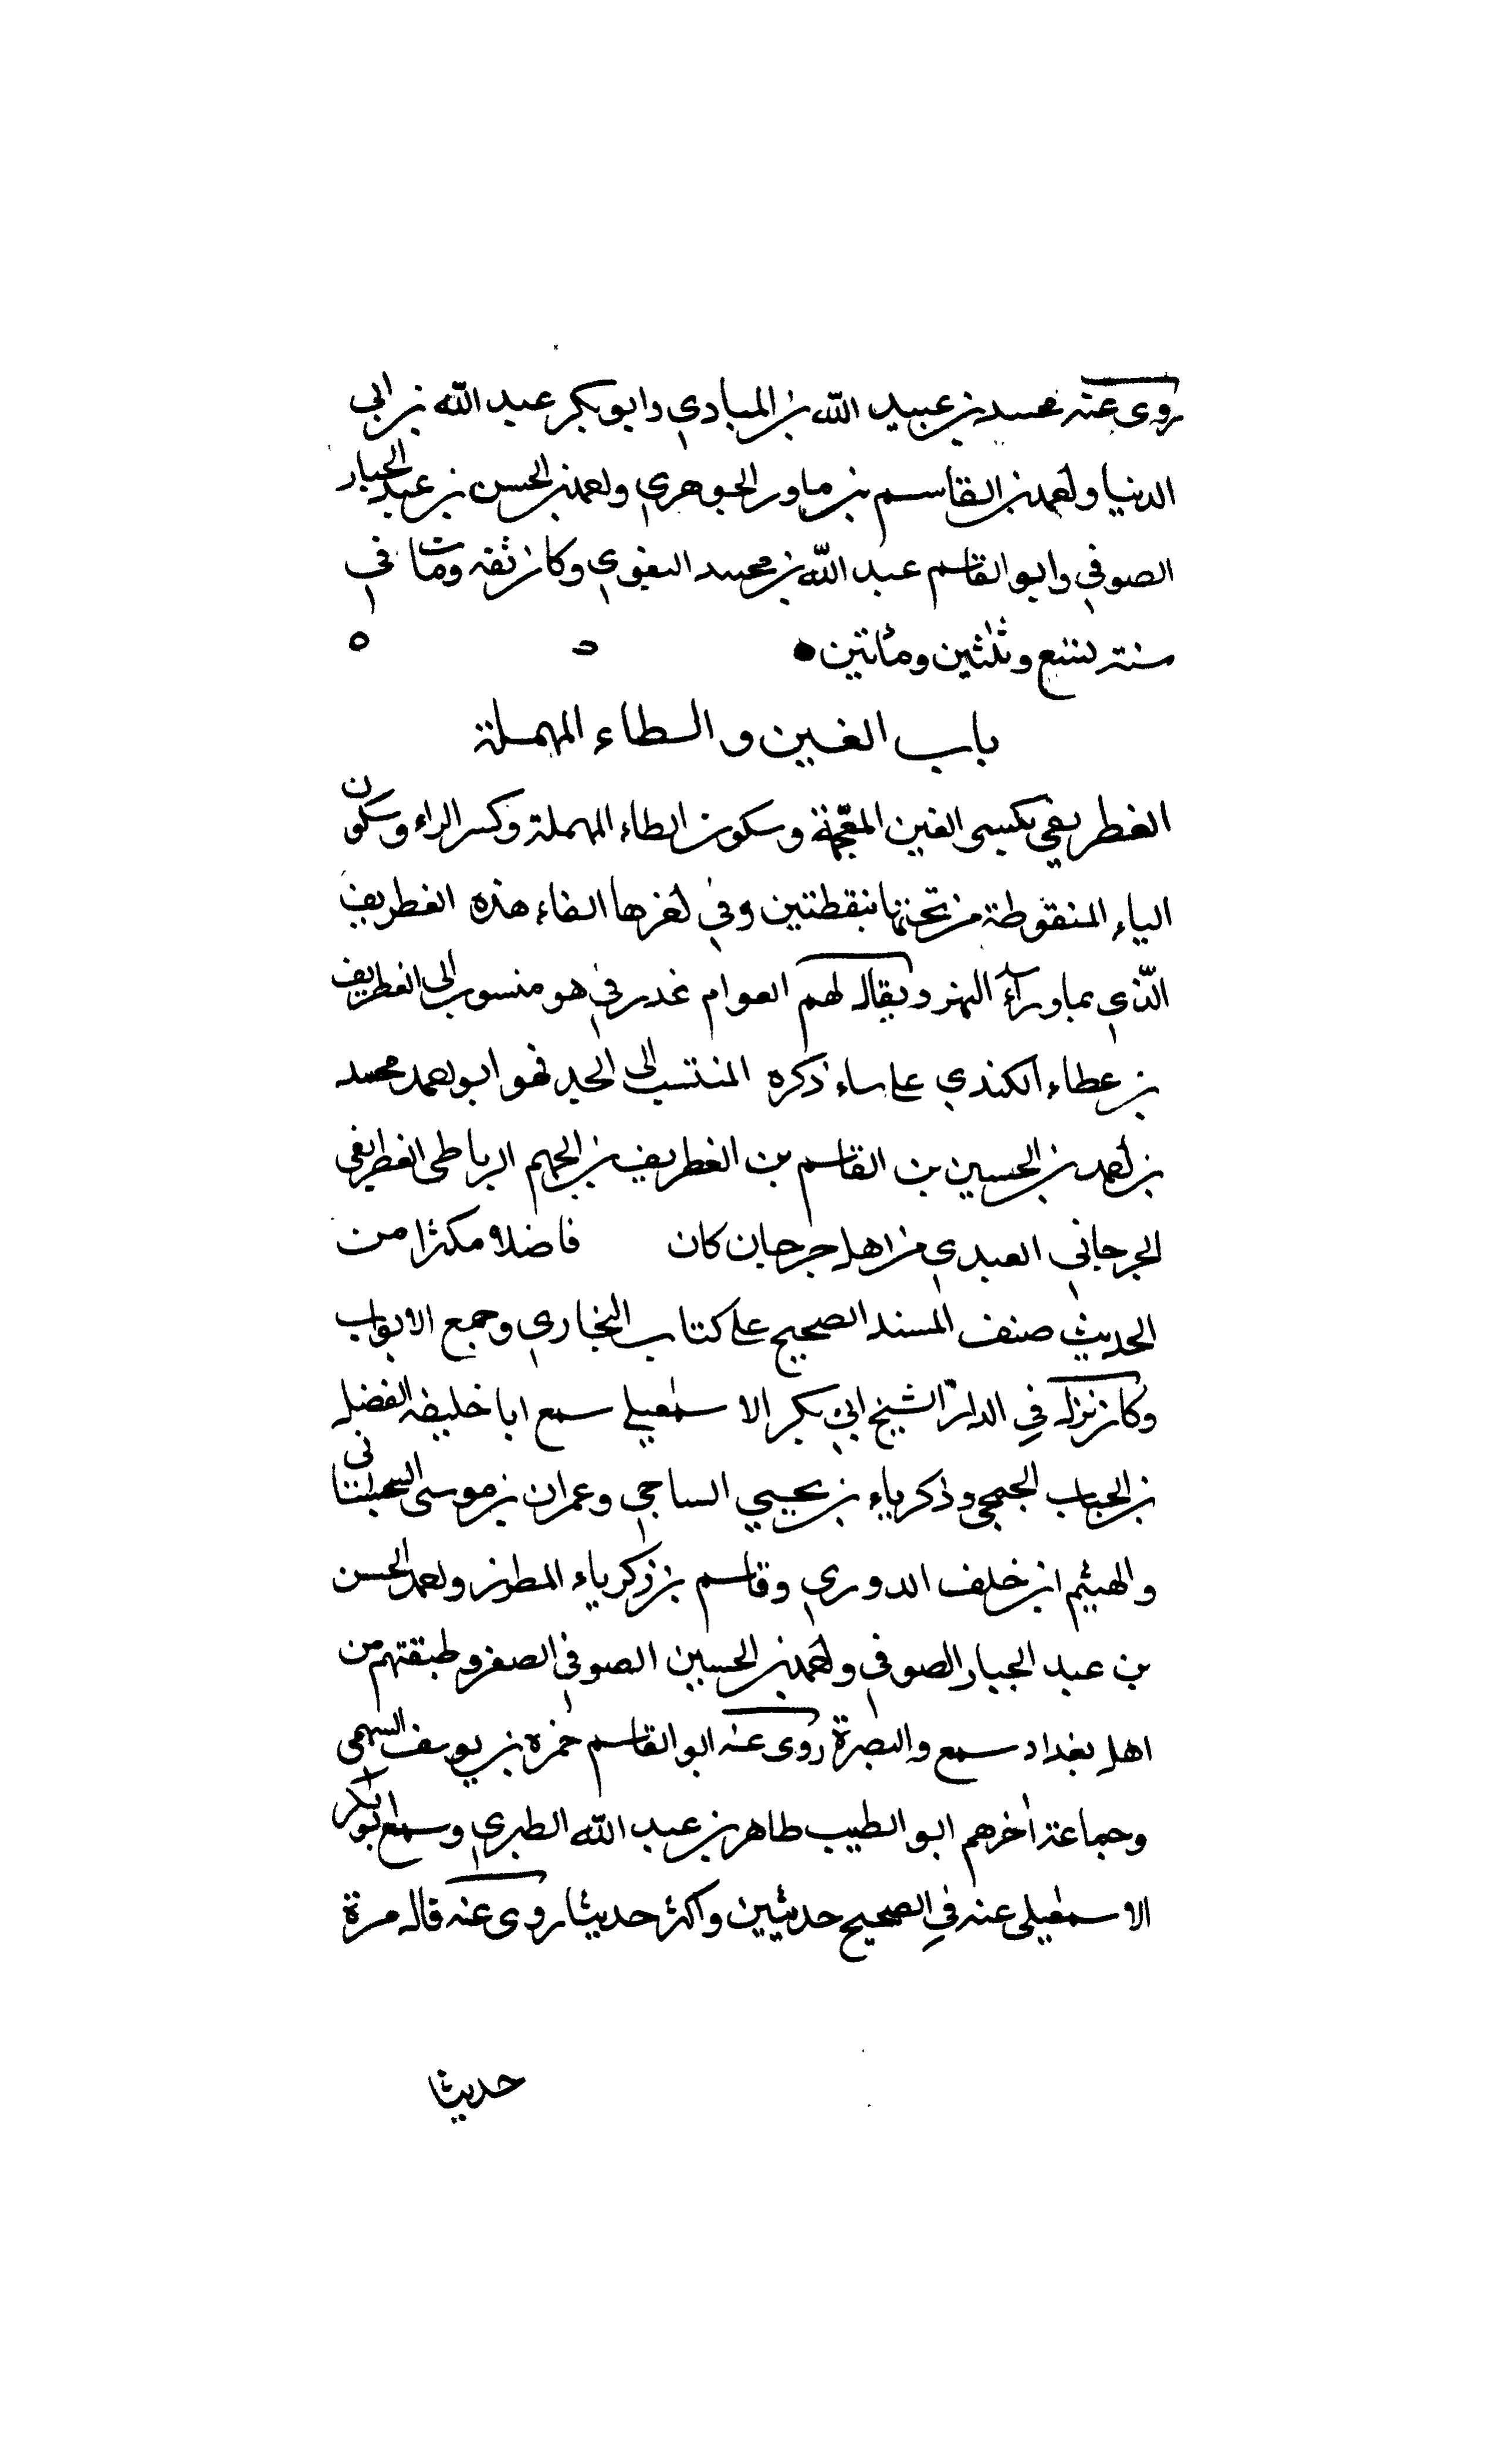 روى عنه محمد بن عبيد الله بن المبادي وابو بكر عبد الله بن ابى
الدنيا واحمد بن القاسم بن ماور الجوهري واحمد بن الحسن بن عبد الجبار
الصوفي وابو القاسم عبد الله بن محمد البغوي وكان ثقه ومات في
سنة تسع وثلثين ومأتين
باب الغين والطاء المهملة
الغطريفي بكسر الغين المعجمة وسكون الطاء المهملة وكسر الراء وسكون
الياء المنقوطة من تحتها بنقطتين وفي اخرها الفاء هذه الغطريف
الذي بماورآء النهر ويقال لهم العوام غدرفي هو منسوب الى الغطريف
بن عطاء الكندي على ساء ذكره المنتسب الى الجد فهو ابو احمد محمد
بن احمد بن الحسين بن القاسم بن الغطريف بن الجهم الرباطى الغطريفي
الجرجاني العبدي من اهل جرجان كان فاضلا مكثرا من
الحديث صنف المسند الصحيح على كتاب البخاري وجمع الابواب
وكان نزله في الدار الشيخ ابي بكر الاسمعيلي سمع ابا خليفه الفضل
بن الحباب الجمحى وذكرياء بن يحيي الساجي وعمران بن موسى السختيانى
والهيثم ابن خلف الدوري وقاسم بن زكرياء المطرز واحمد الحسن
بن عبد الجبار الصوفي واحمد بن الحسين الصوفي الصغر وطبقتهم من
اهل بغداد سمع والبصرة روى عنه ابو القاسم حمزه بن يوسف السهمى
وجماعة اخرهم ابو الطيب طاهر بن عبد الله الطبري وسمع ابو بكر
الاسمعيلى عنه في الصحيح حديثين واكثر حديثا روى عنه قال مرة
حديثا